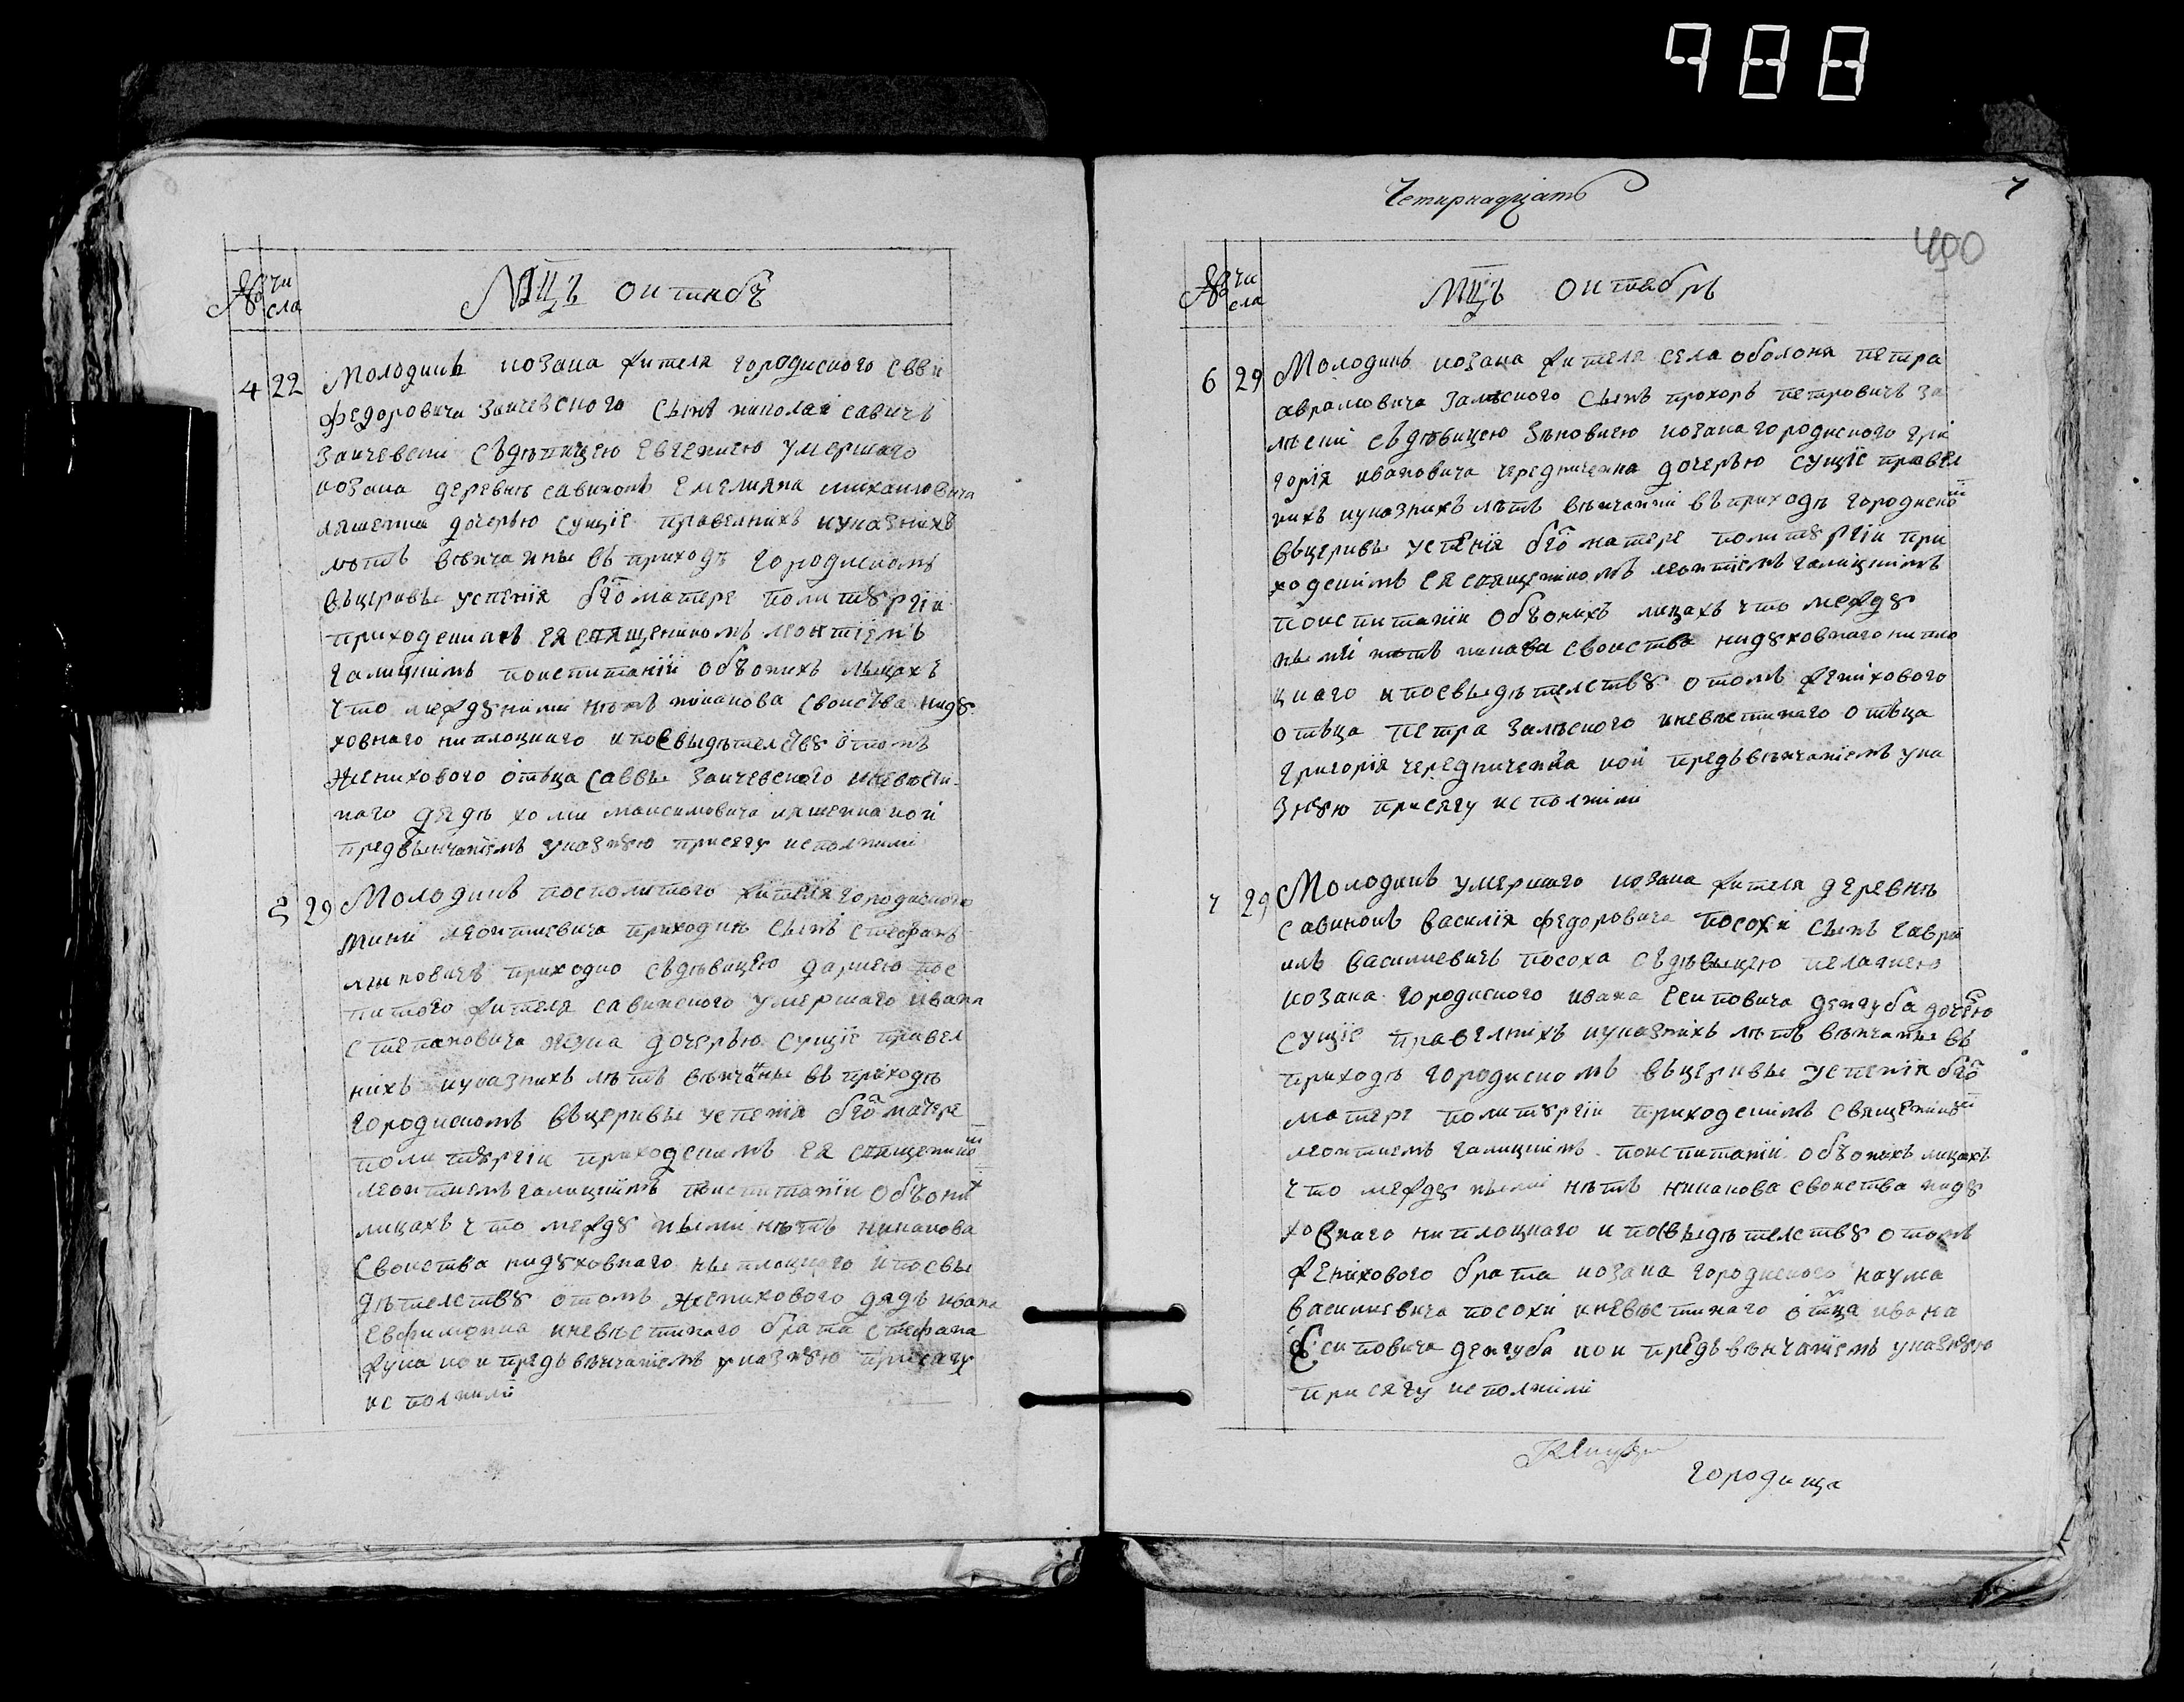 988
№ чи
сла
Мцъ октябр
4 22 Молодикъ козака жителя городиского Савви
Федоровича Заичевского сынъ николаі савичъ
Заичевскі съ дѣвицею евгениею умершаго
козака деревнѣ савинокъ Емелияна михаиловича
ляшенка дочерью сущіе правелнихъ и указнихъ
лѣтъ вѣнчанны въ приходѣ городискомъ
въ церквы успенія бгоматере по литꙋргіи
приходскимъ ея священикомъ леонтіемъ
галицкимъ по испитаніи обѣоихъ лыцахъ
что междꙋ ними нѣтъ никакова своиства ни дꙋ
ховнаго ни плоцкаго и по свыдѣтелствꙋ о томъ
жениховаго отъца саввы Заичевского и невѣсти-
наго дядѣ хоми максимовича ляшенка кои
предъ вѣнчаніемъ указнꙋю присягу исполнили
5 29 Молодикъ посполитого жителя городиского
мини леонтиевича приходка сынъ стефанъ
миновичъ приходко съ дѣвицею дариею пос
питого жителя савинского умершаго ивана
степановича жука дочерью сущіе правел
нихъ и указнихъ лѣтъ вѣнчанны въ приходѣ
городискомъ въ церквы успенія бгоматере
по литꙋргіи приходскимъ ея священико
леонтиемъ галицкимъ по испитаніи обѣоих
лицахъ что междꙋ ными нѣтъ никакова
своиства ни дꙋховнаго ны плоцкаго и по свы
дѣтелствꙋ о томъ женихового дядѣ ивана
евфименка и невѣстинаго брата стефана
жука кои предъ вѣнчаніемъ указнꙋю присягу
исполнили
Четирнадцать
7
490
№ чи
сла
Мцъ октябрь
6 29 Молодикъ козака жителя села оболоня петра
аврамовича Залѣского сынъ прохоръ петровичъ За
лѣскі съ дѣвицею Зѣновиею козака городиского гри
горія ивановича чередниченка дочерью сущіе правел
нихъ и указнихъ лѣтъ вѣнчанні въ приходѣ городиско
въ церквы успенія бго матере по литꙋргіи при
ходскимъ ея священикомъ леонтіемъ галицкимъ
по испитаніи обѣоихъ лицахъ что междꙋ
ны мі нѣтъ никакова своиства ни дꙋховнаго ни пло
цкаго и по свыдѣтелствꙋ о томъ женихового
отьца петра Залѣского и невѣстинаго отьца
григорія чередниченка кои предъ вѣнчаніемъ ука
знꙋю присягу исполнили
7 29 Молодикъ умершаго козака жителя деревнѣ
савинокъ василія федоровича посохи сынъ гаври
илъ василиевичъ посоха съ дѣвыцею пелагиею
козака городиского ивана Есиповича денгуба дочерю
сущіе правелнихъ и указнихъ лѣтъ вѣнчанны въ
приходѣ городискомъ въ церквы успенія бго
матере по литꙋргіи приходскимъ священико
леонтиемъ галицкимъ по испитаніи обѣоихъ лицахъ
что междꙋ ными нѣтъ никакова своиства ни дꙋ
ховнаго ни плоцкаго и по свыдѣтелствꙋ о томъ
женихового брата козака городиского наума
василиевича посохи и невѣстинаго отца ивана
Есиповича денгуба кои предъ вѣнчаніемъ указнꙋю
присягу исполнили
городища